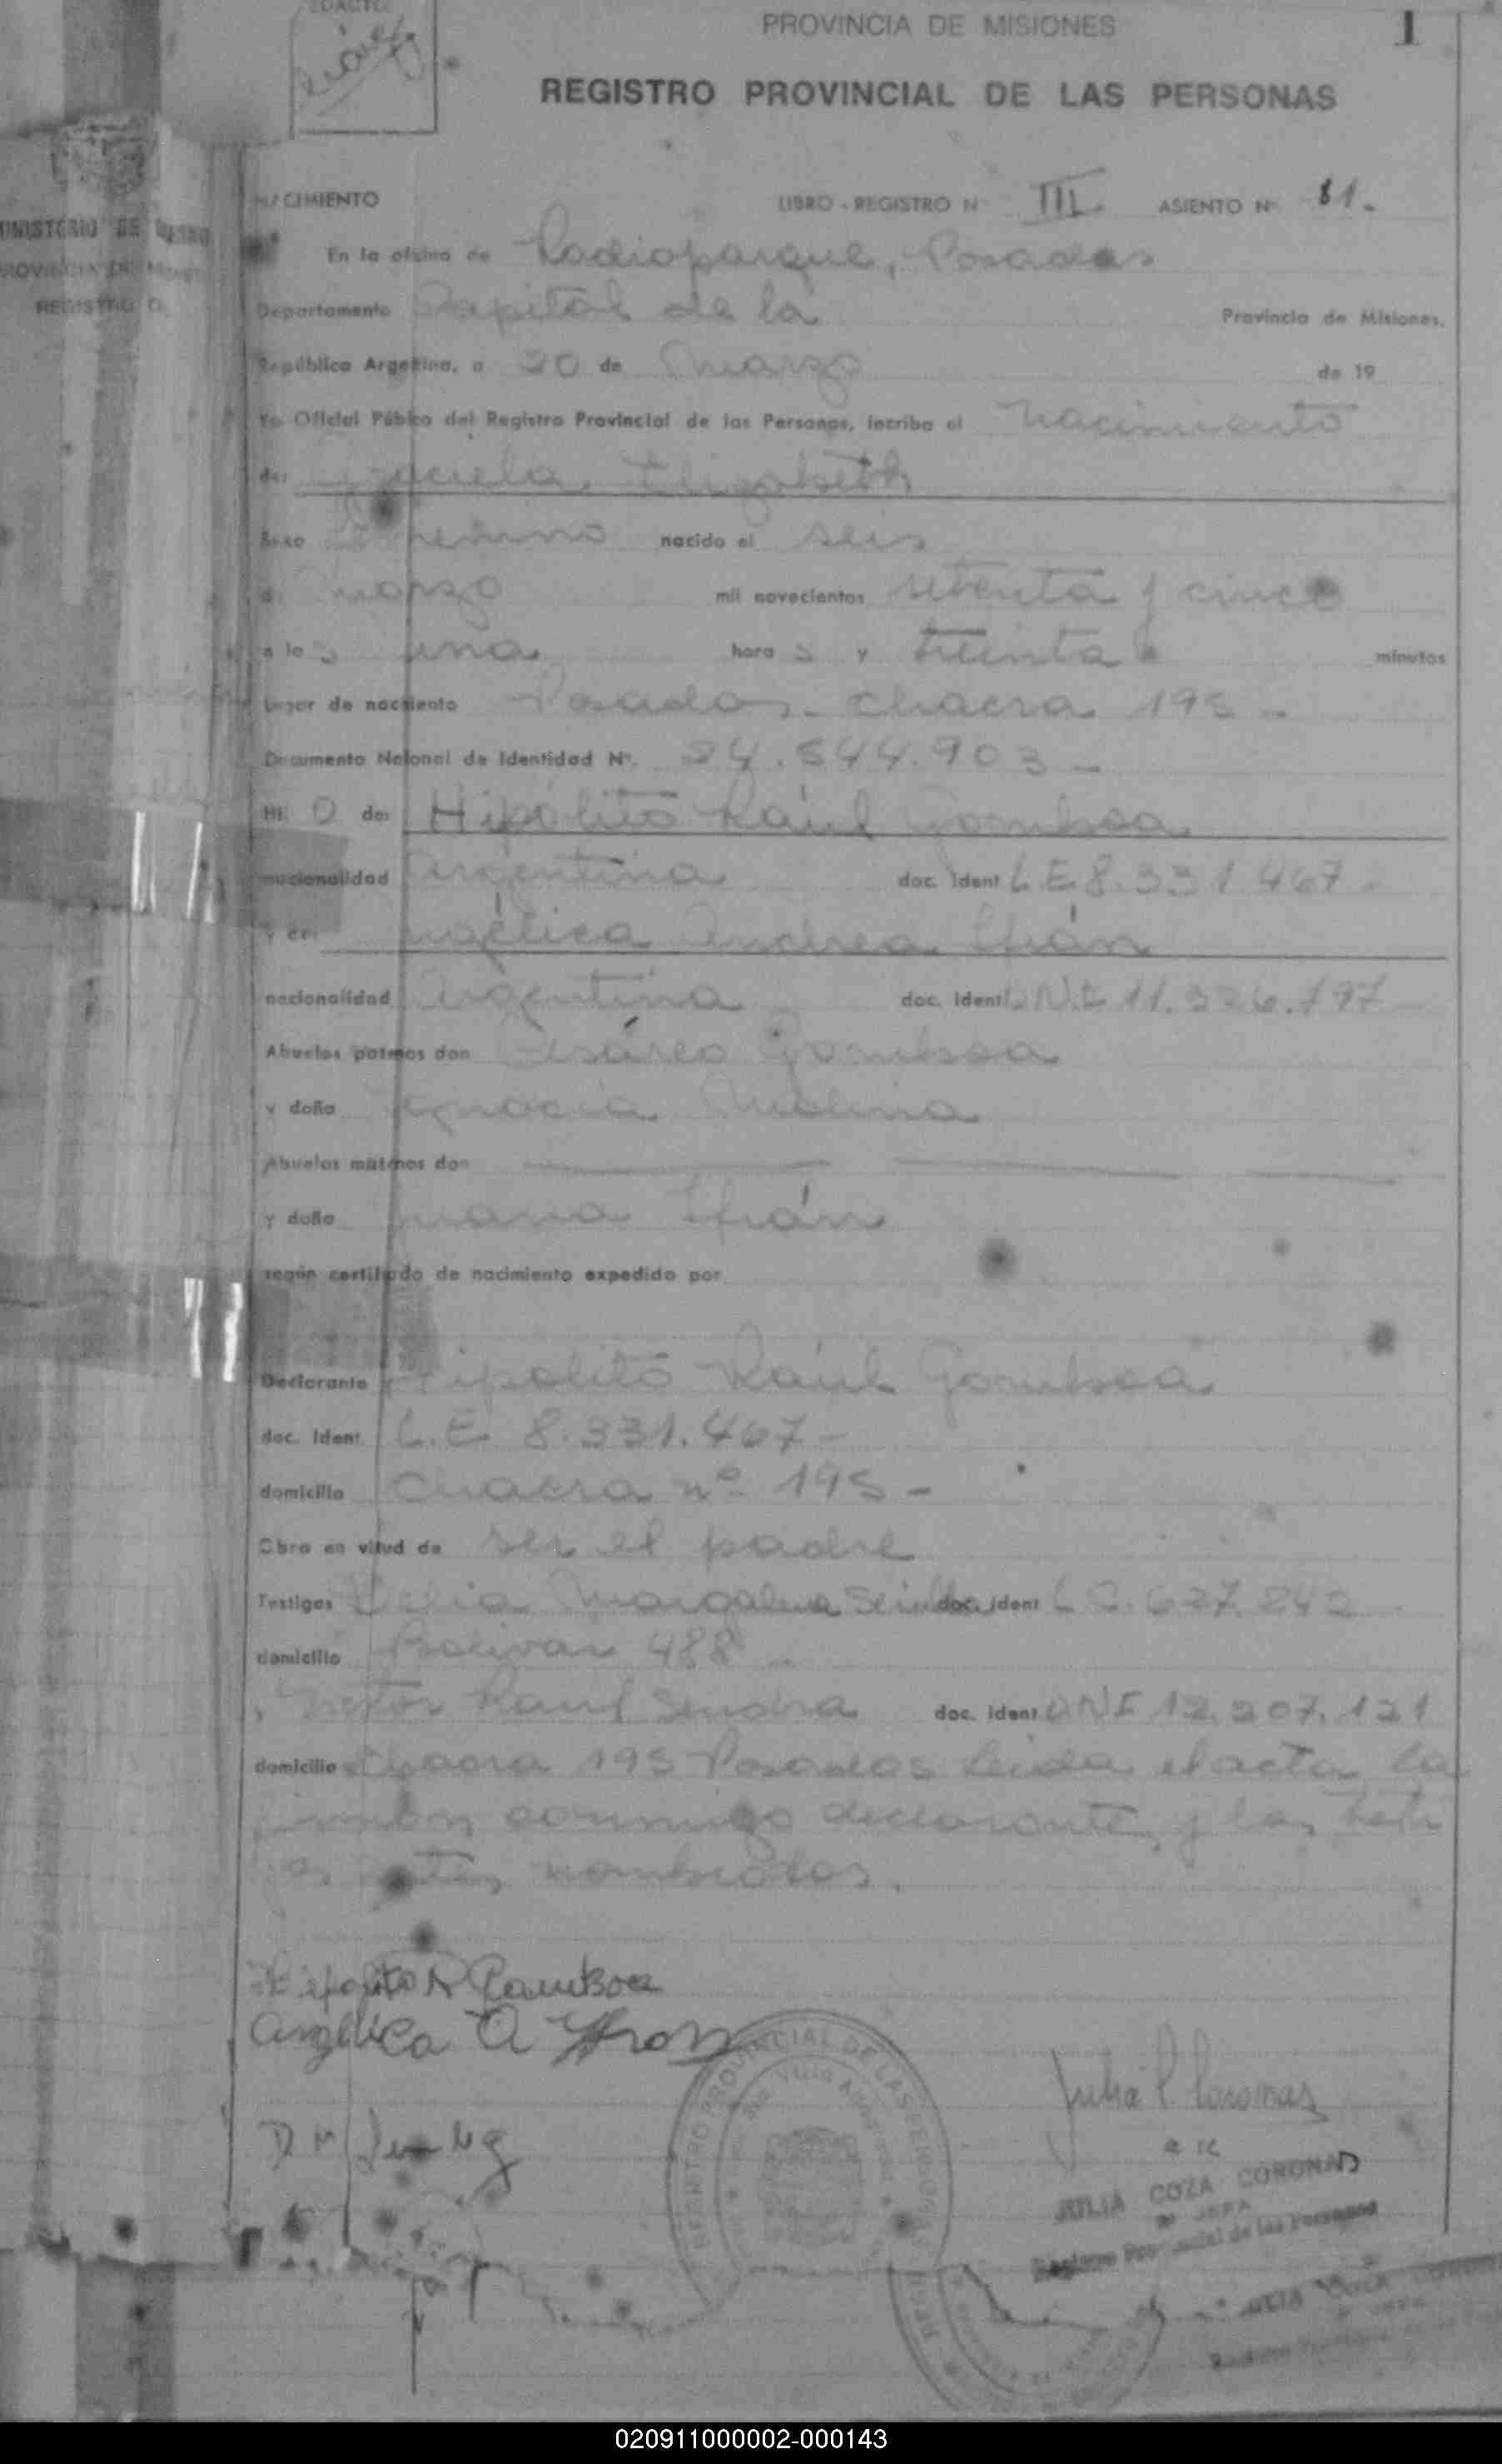 PROVINCIA DE MISIONES
1
REGISTRO PROVINCIAL DE LAS PERSONAS
NACIMIENTO LIBRO - REGISTRO N III ASIENTO Nº 81.
En la oficina de Radioparque, Posadas
Departamento Capital de la Provincia de Misiones.
República Argentina, a 20 de Marzo de 19
Yo Oficial Público del Registro Provincial de las Personas, incribo el nacimiento
de: Graciela Elizabeth
Sexo Femenino nacido el seis
de marzo mil novecientos setenta y cinco
a las una hora s y treinta minutos
Lugar de nacimiento Posadas - Chacra 195 -
Documento Nacional de Identidad Nº. 24.544.903 -
Hij a de: Hipólito Raúl Gamboa
nacionalidad Argentina doc. Ident L E 8.331.467 -
y de: Angélica Andrea Ifrán
nacionalidad Argentina doc. ident D.N.I 11.326.797
Abuelos paternos don Cesáreo Gamboa
y doña Ignacia Molina
Abuelos maternos don
y doña Juana Ifrán
según certificado de nacimiento expedido por
Declarante Hipolito Raúl Gamboa
doc. Ident. L.E 8.331.467 -
domicilio Chacra nº 195 -
Obra en virtud de ser el padre
Testigos Delia doc. ident L C. 627.242
domicilio Bolivar 488 -
Raul doc. ident DNI 12.207.121
domicilio Chacra 195 Posadas Leida el acta la
firman conmigo declarante y los testi
antes nombrados.
Hipolito R Gamboa
Angelica A Ifran
REGISTRO PROVINCIAL DE LAS PERSONAS
JULIA COZA CORONAD
JEFA
Registro Provincial de las Personas
020911000002-000143